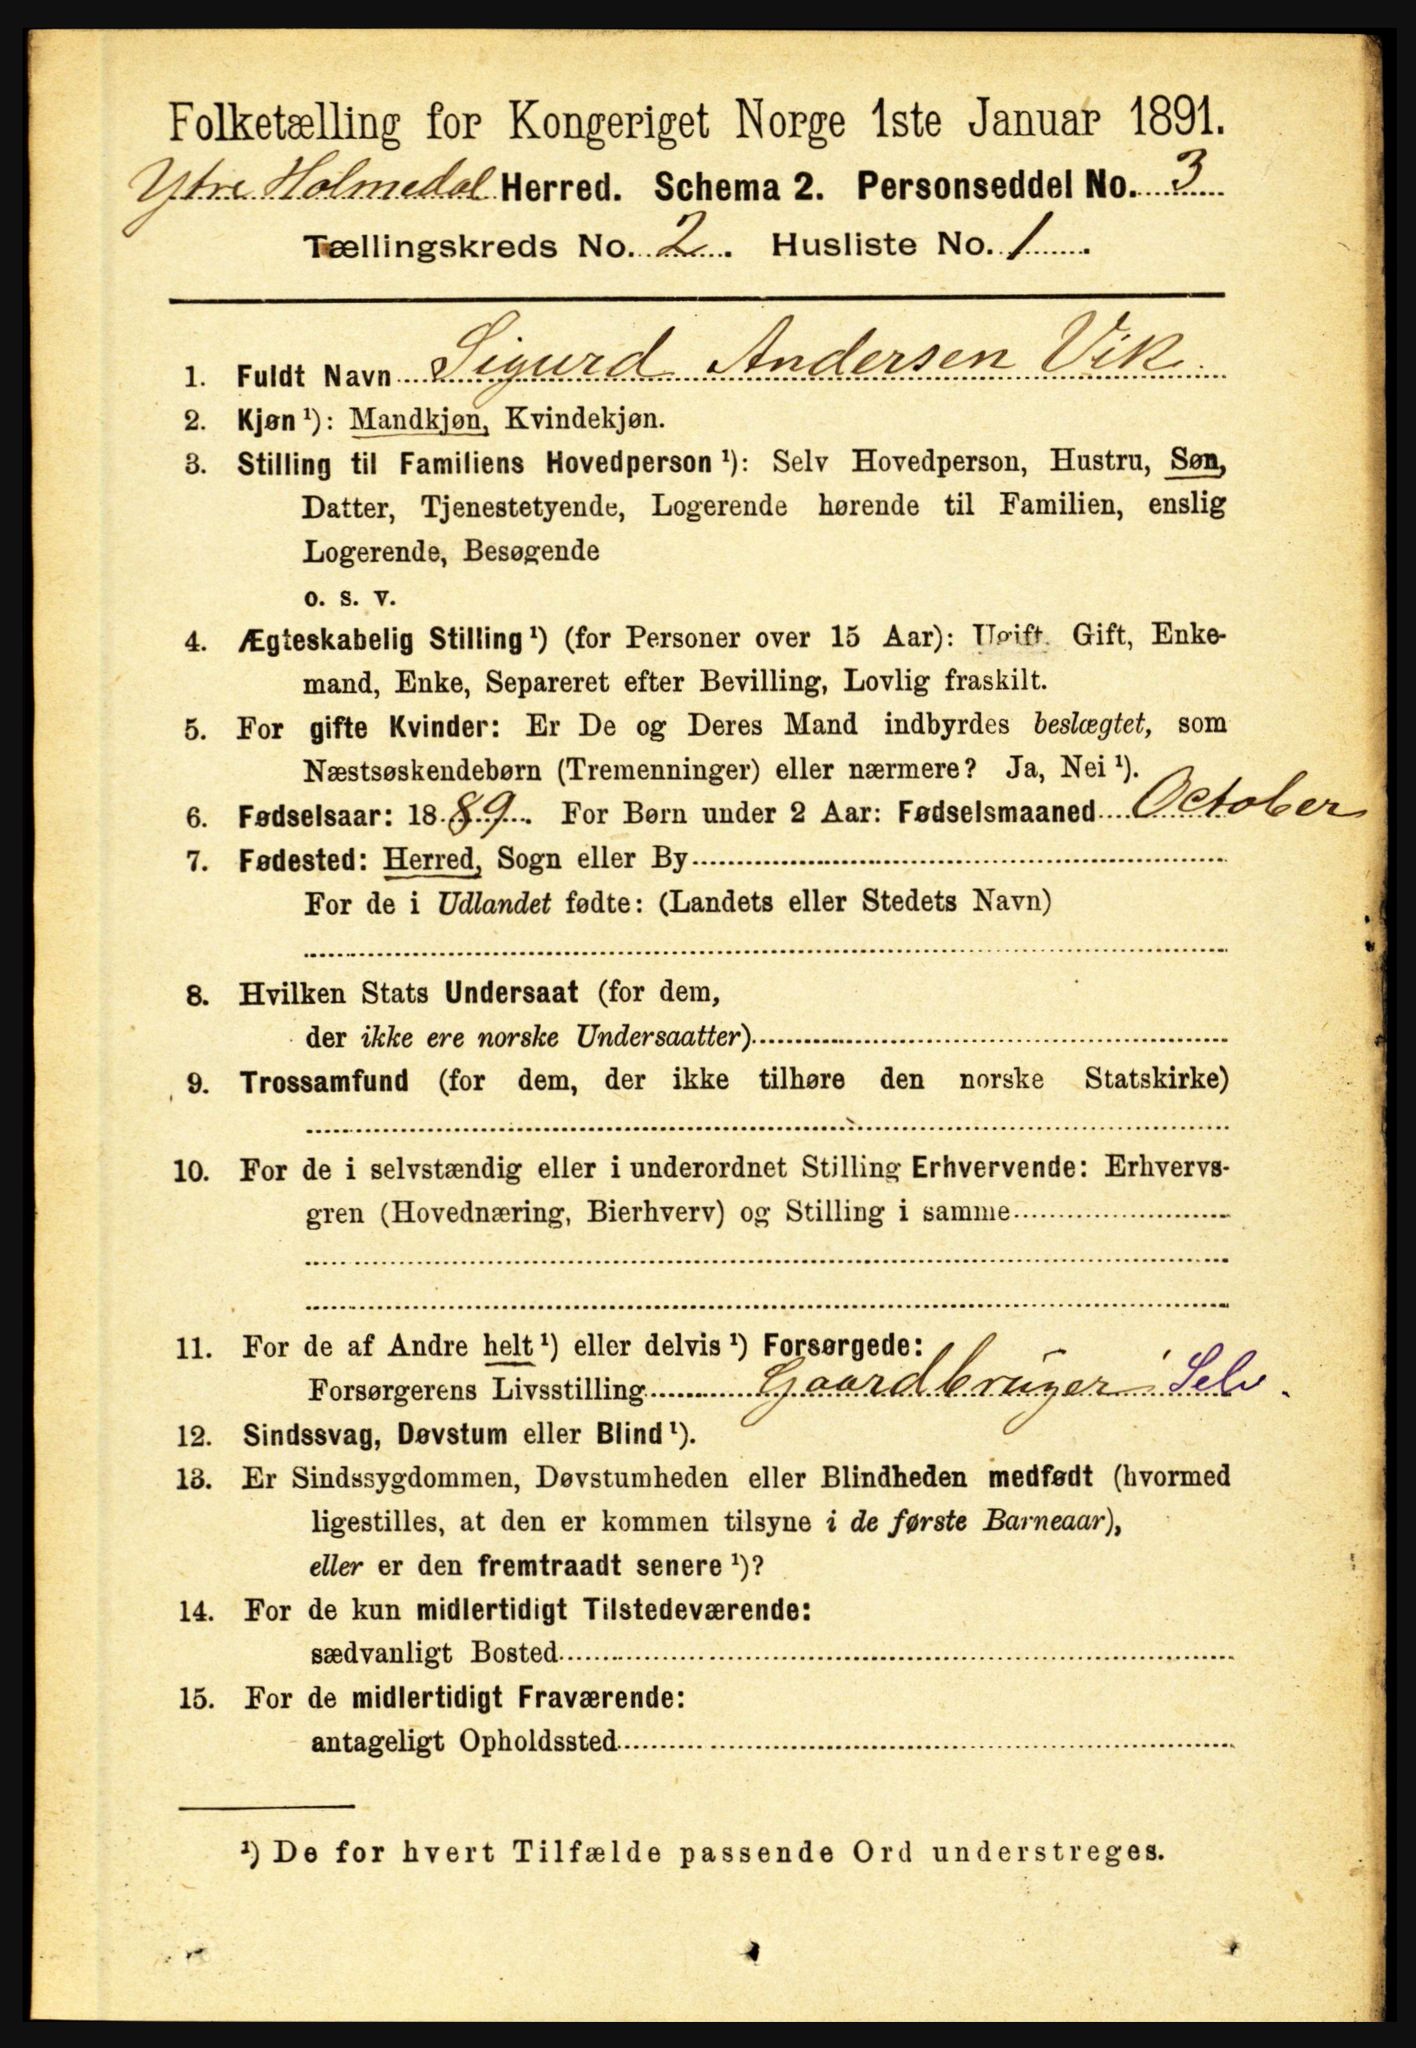 Folketælling for Kongeriget Norge 1ste Januar 1891.
Ytre Holmedal Herred. Schema 2. Personseddel No. 3
Tællingskreds No. 2. Husliste No. 1.
1. Fuldt Navn Sigurd Andersen Vik
2. Kjøn ¹): Mandkjøn, Kvindekjøn.
3. Stilling til Familiens Hovedperson ¹): Selv Hovedperson, Hustru, Søn,
Datter, Tjenestetyende, Logerende hørende til Familien, enslig
Logerende, Besøgende
o. s. v.
4. Ægteskabelig Stilling ¹) (for Personer over 15 Aar): Ugift, Gift, Enke-
mand, Enke, Separeret efter Bevilling, Lovlig fraskilt.
5. For gifte Kvinder: Er De og Deres Mand indbyrdes beslægtet, som
Næstsøskendebørn (Tremenninger) eller nærmere? Ja, Nei ¹).
6. Fødselsaar: 1889. For Børn under 2 Aar: Fødselsmaaned October
7. Fødested: Herred, Sogn eller By
For de i Udlandet fødte: (Landets eller Stedets Navn)
8. Hvilken Stats Undersaat (for dem,
der ikke ere norske Undersaatter)
9. Trossamfund (for dem, der ikke tilhøre den norske Statskirke)
10. For de i selvstændig eller i underordnet Stilling Erhvervende: Erhvervs-
gren (Hovednæring, Bierhverv) og Stilling i samme
11. For de af Andre helt ¹) eller delvis ¹) Forsørgede:
Forsørgerens Livsstilling Gaardbruger Selv.
12. Sindssvag, Døvstum eller Blind ¹).
13. Er Sindssygdommen, Døvstumheden eller Blindheden medfødt (hvormed
ligestilles, at den er kommen tilsyne i de første Barneaar),
eller er den fremtraadt senere ¹)?
14. For de kun midlertidigt Tilstedeværende:
sædvanligt Bosted
15. For de midlertidigt Fraværende:
antageligt Opholdssted
¹) De for hvert Tilfælde passende Ord understreges.